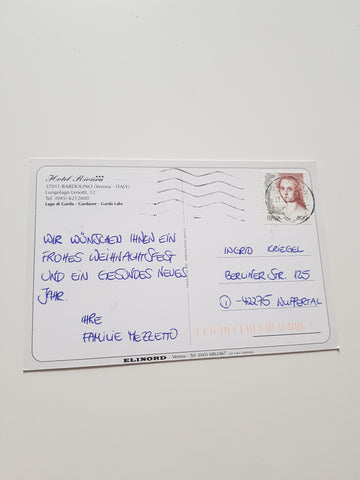 Hotel Riviera
37011 BARDOLINO (Verona - ITALY)
Lungolago Lenotti, 12
Tel. (045) 6212600
Lago di Garda - Gardasee - Garda Lake
WIR WÜNSCHEN IHNEN EIN
FROHES WEIHNACHTSFEST
UND EIN GESUNDES NEUES
JAHR.
IHRE
FAMILIE MEZZETTO
ITALIA 800
INGRID KRIEGEL
BERLINER STR. 125
D-42275 WUPPERTAL
ELINORD - Verona - Tel. (045) 6862467